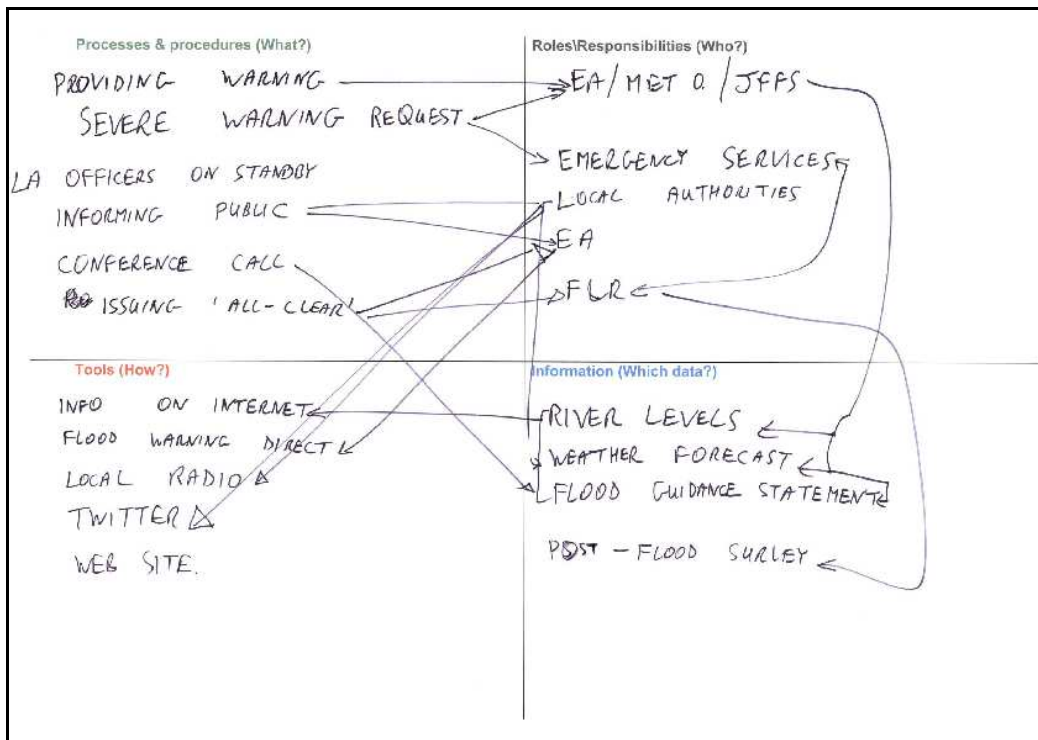 Processes & procedures (What?)
PROVIDING WARNING
SEVERE WARNING REQUEST
LA OFFICERS ON STANDBY
INFORMING PUBLIC
CONFERENCE CALL
ISSUING 'ALL-CLEAR'
Roles\Responsibilities (Who?)
EA/MET O./JFFS
EMERGENCY SERVICES
LOCAL AUTHORITIES
EA
FLR
Tools (How?)
INFO ON INTERNET
FLOOD WARNING DIRECT
LOCAL RADIO
TWITTER
WEB SITE.
Information (Which data?)
RIVER LEVELS
WEATHER FORECAST
FLOOD GUIDANCE STATEMENT
POST - FLOOD SURLEY